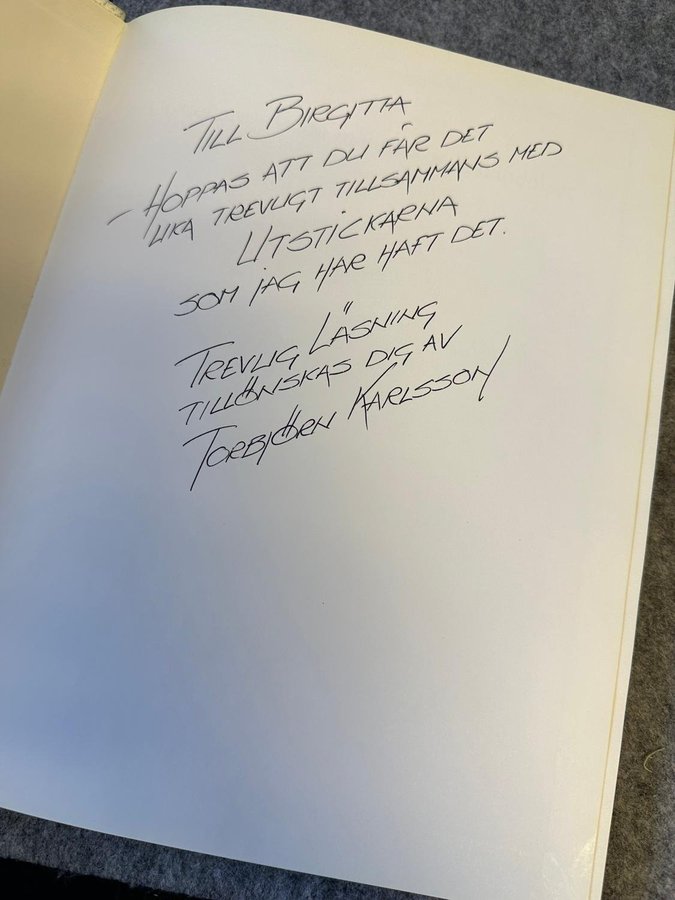 TILL BIRGITTA
– HOPPAS ATT DU FÅR DET
LIKA TREVLIGT TILLSAMMANS MED
UTSTICKARNA
SOM JAG HAR HAFT DET.
TREVLIG LÄSNING
TILLÖNSKAS DIG AV
TORBJÖRN KARLSSON